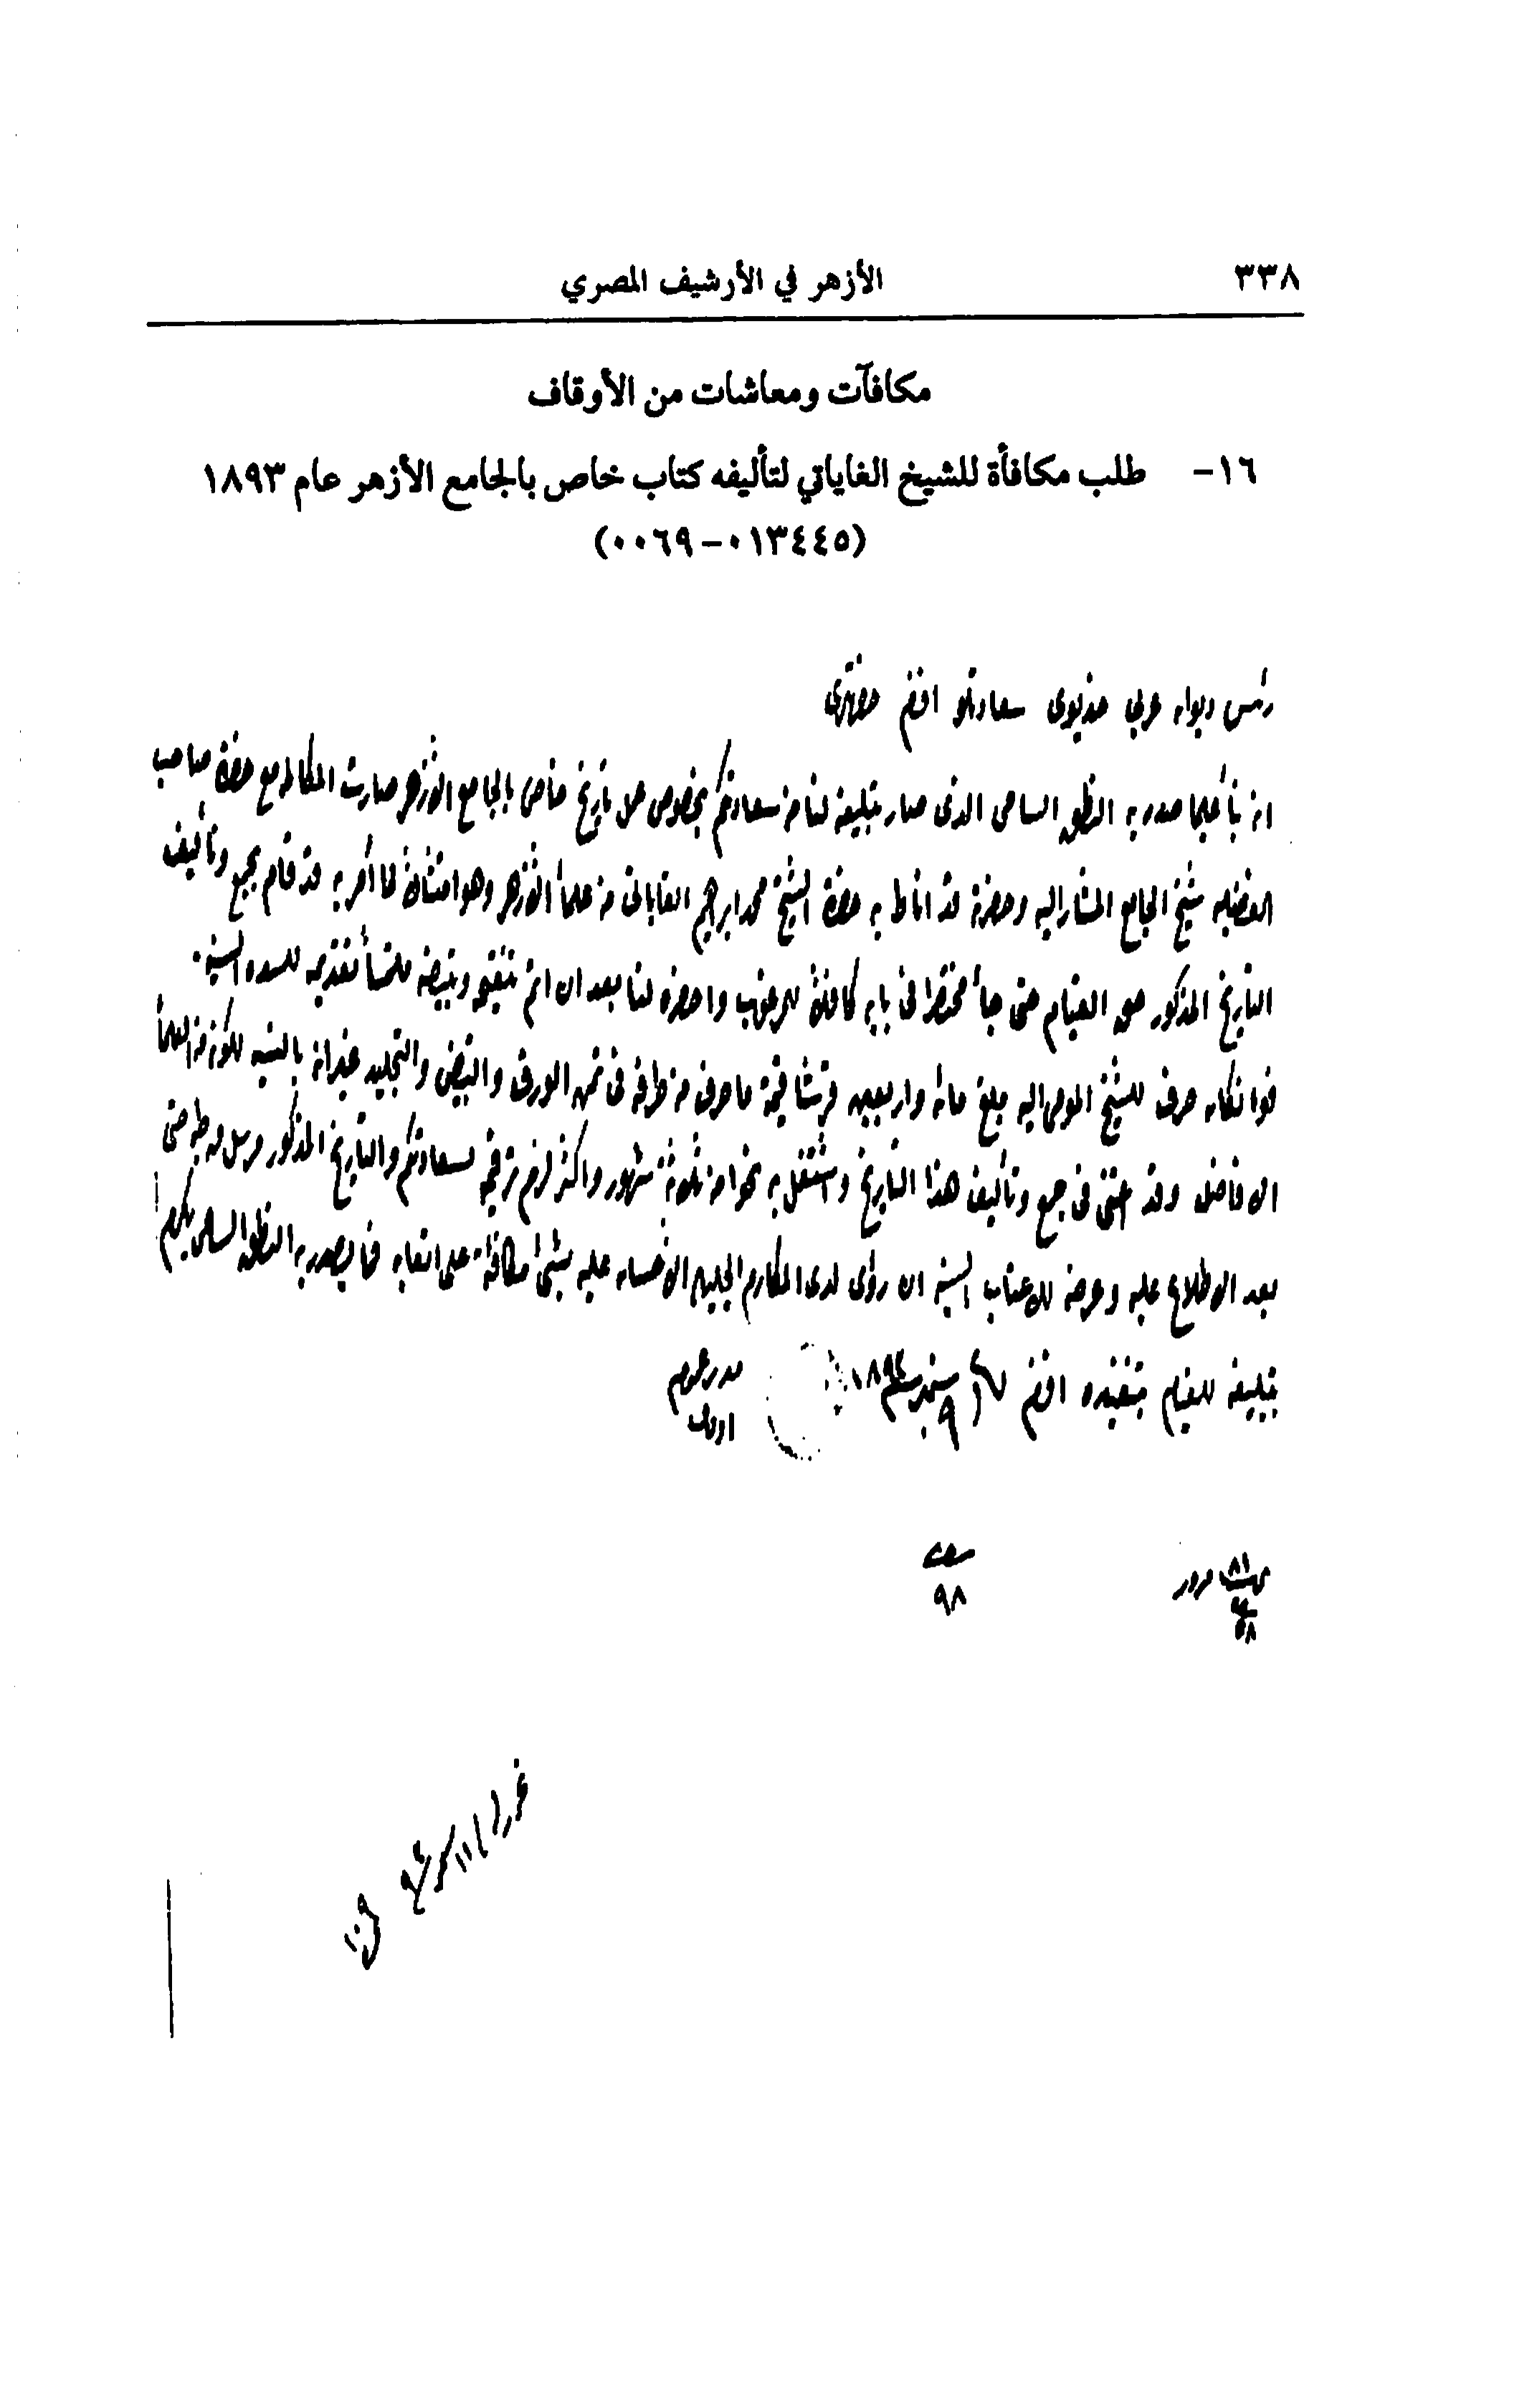 ٣٣٨
الأزهر في الأرشيف المصري
مكافآت ومعاشات من الأوقاف
١٦- طلب مكافأة للشيخ الغاياتي لتأليفه كتاب خاص بالجامع الأزهر عام ١٨٩٣
(٠٠٦٩-٠١٣٤٤٥)
رئيس ديوان عربي خديوى سعادتلو افندم حضرتلرى
انه بنأ عما صدر به النطق السامى الذى صار تبليغه لنا من سعادتكم بخصوص عمل تاريخ خاص بالجامع الازهر صارت المكالمه مع حضرة صاحب
الفضيله شيخ الجامع المشار اليه وحضرته قد اناط به حضرة الشيخ محمد ابرهيم الغاياتى من علمأ الازهر وهو امتثالا لما أمر به قد قام بجمع وتأليف
التاريخ المذكور حق القيام حتى جأ مختصرا فى بابه كافلا للمرغوب واحضره لنا بعد ان اتم تنقيحه وتبيضه ملتمسا تقديمه للسده السنيه
مبلغ مايه واربعين قرشا قيمة ما صرف من طرفه فى ثمن الورق والتبيض والتجليد غير انه بالنسبه لكونه من العلمأ
الافاضل وقد اعتنى فى جمع وتأليف هذا التاريخ واشتغل به نحوا من ثلاثة شهور واكثر لزم ترقيمه لسعادتكم والتاريخ المذكور مرسل من طيه حتى
بعد الاطلاع عليه وعرضه للاعتاب السنيه ان رؤى لدى المكارم الجليله الاحسان عليه بشئ مكافأة على اتعابه فما يصدر به النطق السامى يكرم
بتبليغه للقيام بتنفيذه افندم
مدير عموم
اوقاف
٩٨